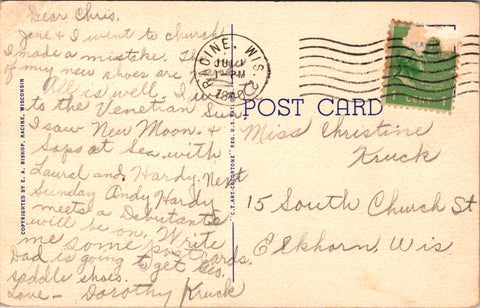 Dear Chris.
Jane & I went to church
I made a mistake.
of my new shoes are
All is well, I
to the Venetian Sun.
I saw New Moon. &
Saps at Sea, with
Laurel and Hardy. Next
Sunday Andy Hardy
meets a Debutante
will be on. Write
me some postcards.
Dad is going to get Geo.
saddle shoes.
Love - Dorothy Kruck
COPYRIGHTED BY E. A. BISHOP, RACINE, WISCONSIN
RACINE, WIS.
PM
1940
POST CARD
1 CENT
Miss Christine
Kruck
15 South Church St
Elkhorn, Wis